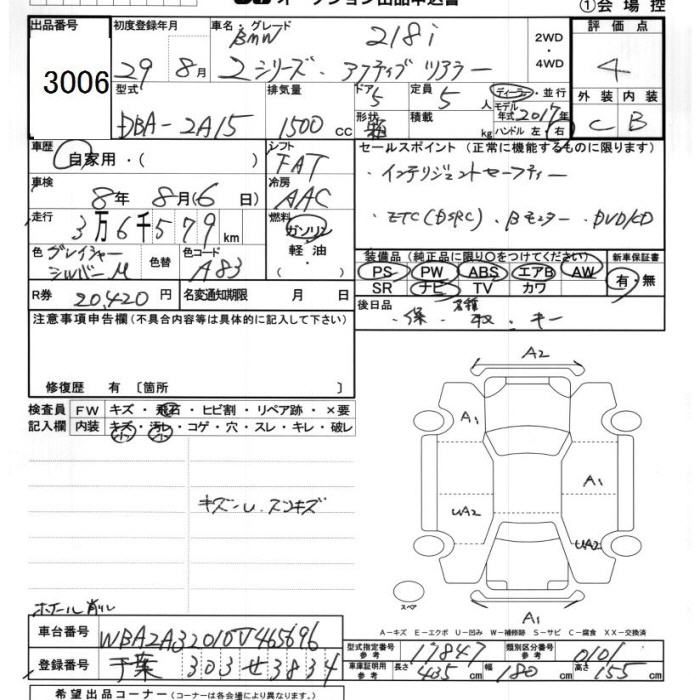 オークション出品申込書
①会場控
出品番号
3006
初度登録年月
29年 8月
車名・グレード
BMW 218i
2シリーズ・アクティブツアラー
2WD
・
4WD
評価点
4
外装 内装
C B
型式
DBA-2A15
排気量
1500 cc
ドア
5
形状
箱
定員
5 人
積載
kg
ディーラー・並行
モデル年式 2017年
ハンドル 左・右
車歴
自家用・( )
シフト
FAT
車検
8年 8月(6日)
冷房
AAC
走行
3万6千579km
燃料
ガソリン
軽・油
( )
色
グレイシャーシルバーM
色替
色コード
A83
R券
20,420円
名変通知期限 月 日
セールスポイント(正常に機能するものに限ります)
・インテリジェントセーフティー
・ETC(DSRC)・Bモニター・DVD/CD
装備品(純正品に限り○をつけてください)
PS PW ABS エアB AW
SR ナビ TV カワ
新車保証書
有・無
後日品
・保・取・キー
注意事項申告欄(不具合内容等は具体的に記入して下さい)
修復歴 有 [箇所 ]
検査員記入欄
FW キズ・飛石・ヒビ割・リペア跡・×要
内装 キズ・汚レ・コゲ・穴・スレ・キレ・破レ
キズ・U、スンキズ
ホイール削レ
A2
A1
A1
UA2
UA2
A1
スペア
A-キズ E-エクボ U-凹み W-補修跡 S-サビ C-腐食 XX-交換済
車台番号
WBA2A32010V465696
登録番号
千葉 303 せ 3834
型式指定番号 参考
17847
類別区分番号 参考
0101
車庫証明用 参考
長さ 435cm 幅 180cm 高さ 155cm
希望出品コーナー(コーナーは各会場により異なります。)